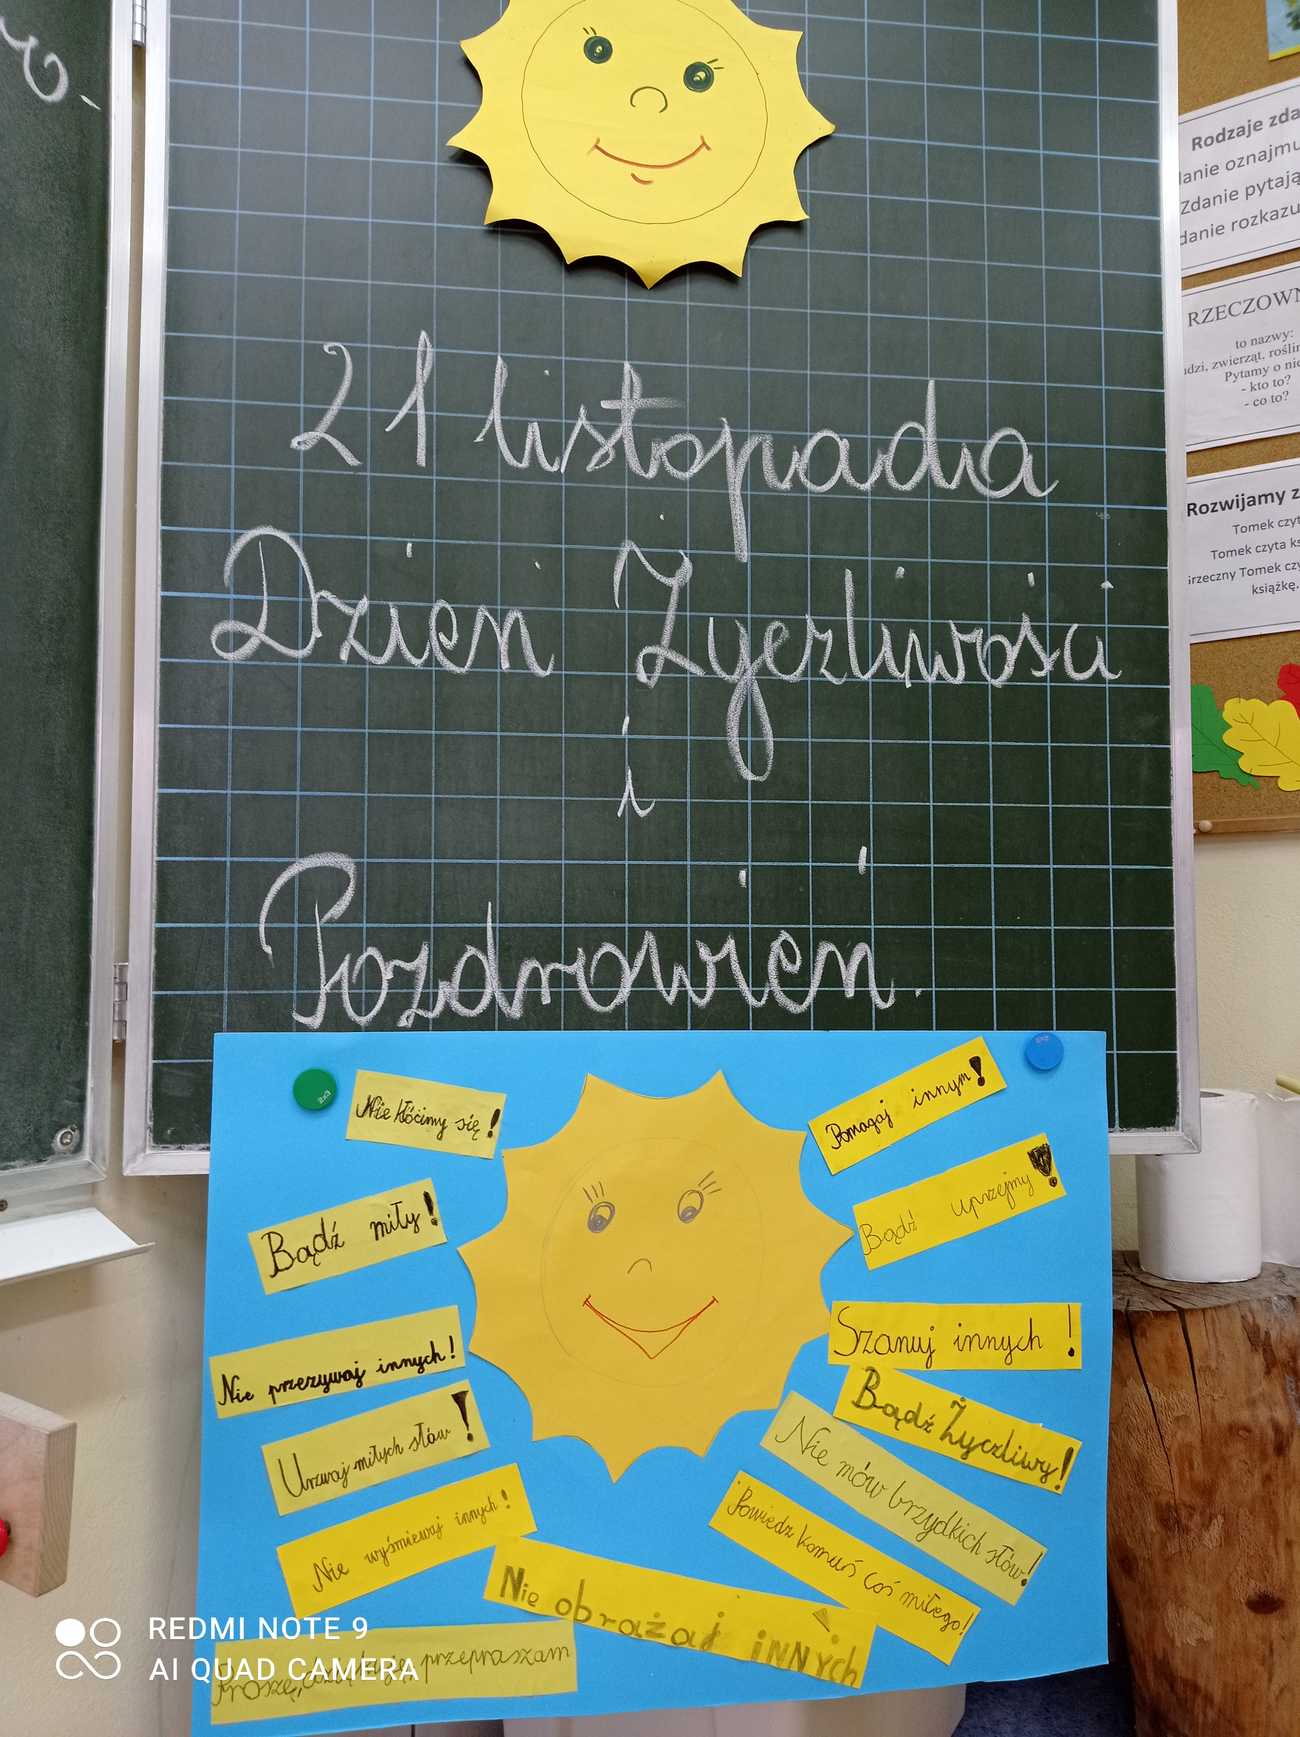 21 listopada
Dzień Życzliwości
i
Pozdrowień.
Rodzaje zda
danie oznajmu
Zdanie pytają
danie rozkazu
RZECZOWN
to nazwy:
udzi, zwierząt, roślin
Pytamy o nie
- kto to?
- co to?
Rozwijamy z
Tomek czyt
Tomek czyta ks
Grzeczny Tomek czy
książkę.
Nie kłócimy się!
Bądź miły!
Nie przezywaj innych!
Używaj miłych słów!
Nie wyśmiewaj innych!
Proszę, dziękuję, przepraszam
Nie obrażaj innych
Pomagaj innym!
Bądź uprzejmy!
Szanuj innych!
Bądź Życzliwy!
Nie mów brzydkich słów!
Powiedz komuś coś miłego!
REDMI NOTE 9
AI QUAD CAMERA